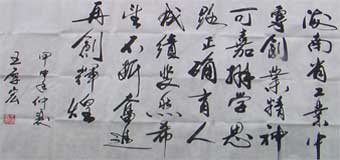 海南省工业中
专创业精神
可嘉办学思
路正确有人
成绩斐然希
望不断奋进
再创辉煌
甲申年仲夏
王厚宏